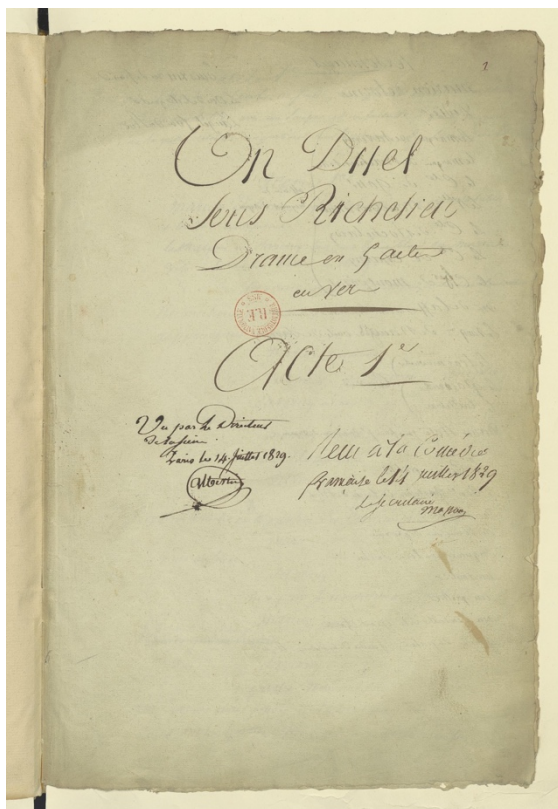 1
Un Duel
sous Richelieu
Drame en 5 actes
en vers
R.F.
Acte 1er
Vu par le Directeur
de la scène
Paris le 14 Juillet 1829.
Reçu à la Comédie
française le 14 juillet 1829
Le Secrétaire